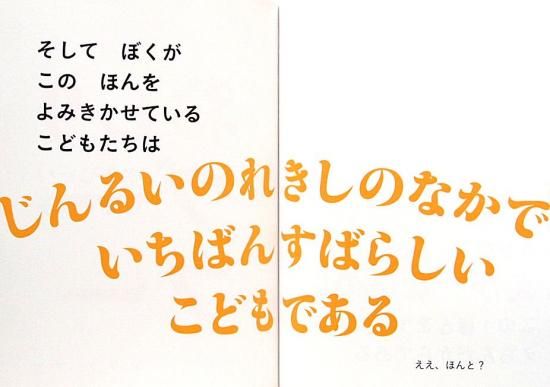 そして　ぼくが
この　ほんを
よみきかせている
こどもたちは
じんるいのれきしのなかで
いちばんすばらしい
こどもである
ええ、ほんと？